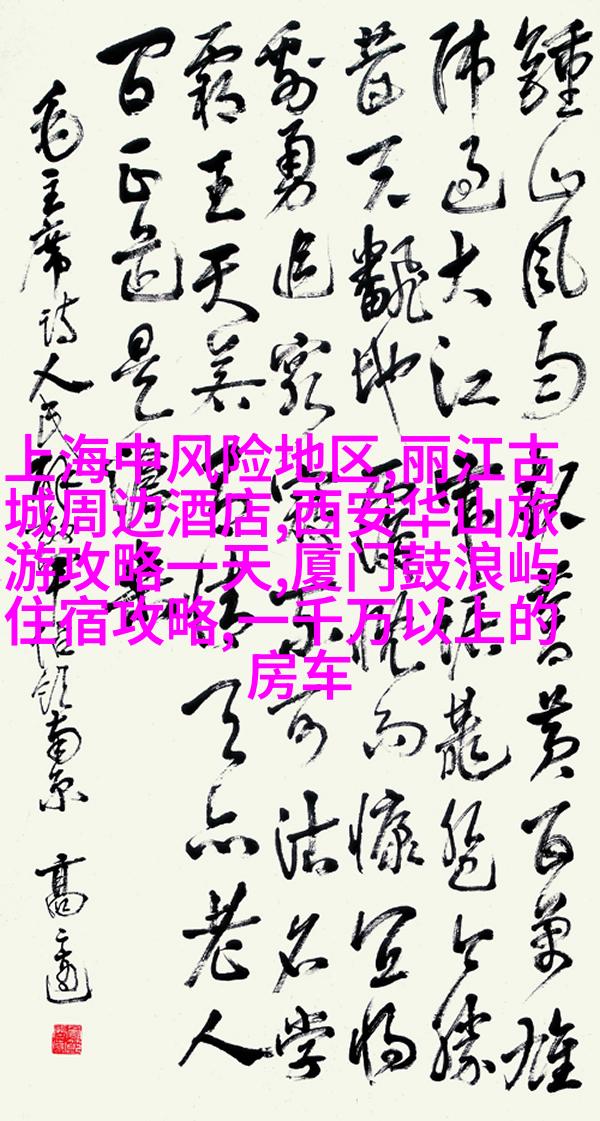 鍾山風雨起蒼黄百萬雄
师過大江虎踞龍盤今勝
昔天翻地覆慨而慷宜將
剩勇追窮寇不可沽名學
霸王天若有情天亦老人
間正道是滄桑
毛主席詩人民解放軍占領南京 高
上海中风险地区,丽江古
城周边酒店,西安华山旅
游攻略一天,厦门鼓浪屿
住宿攻略,一千万以上的
房车